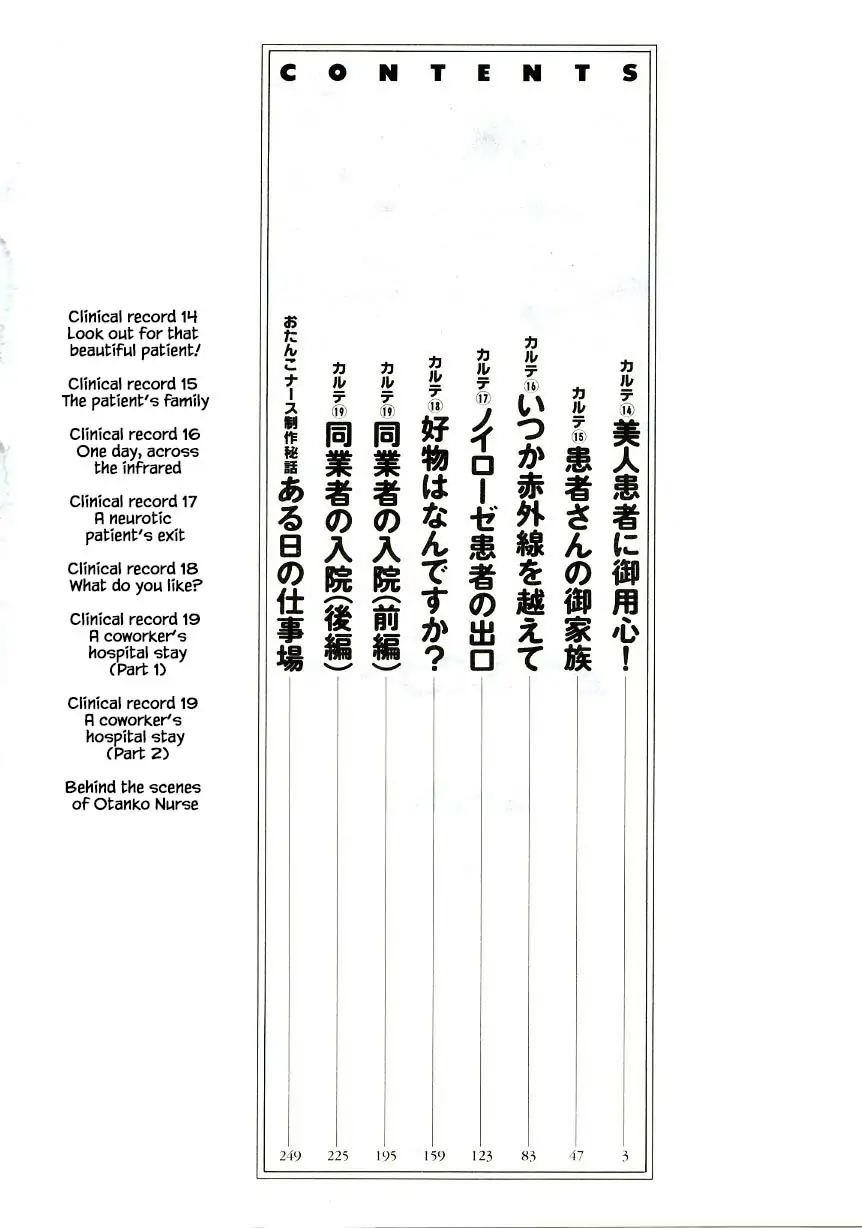 CONTENTS
カルテ⑭美人患者に御用心！
3
カルテ⑮患者さんの御家族
47
カルテ⑯いつか赤外線を越えて
83
カルテ⑰ノイローゼ患者の出口
123
カルテ⑱好物はなんですか？
159
カルテ⑲同業者の入院（前編）
195
カルテ⑲同業者の入院（後編）
225
おたんこナース制作秘話 ある日の仕事場
249
Clinical record 14
Look out for that
beautiful patient!
Clinical record 15
The patient's family
Clinical record 16
One day, across
the infrared
Clinical record 17
A neurotic
patient's exit
Clinical record 18
What do you like?
Clinical record 19
A coworker's
hospital stay
(Part 1)
Clinical record 19
A coworker's
hospital stay
(Part 2)
Behind the scenes
of Otanko Nurse